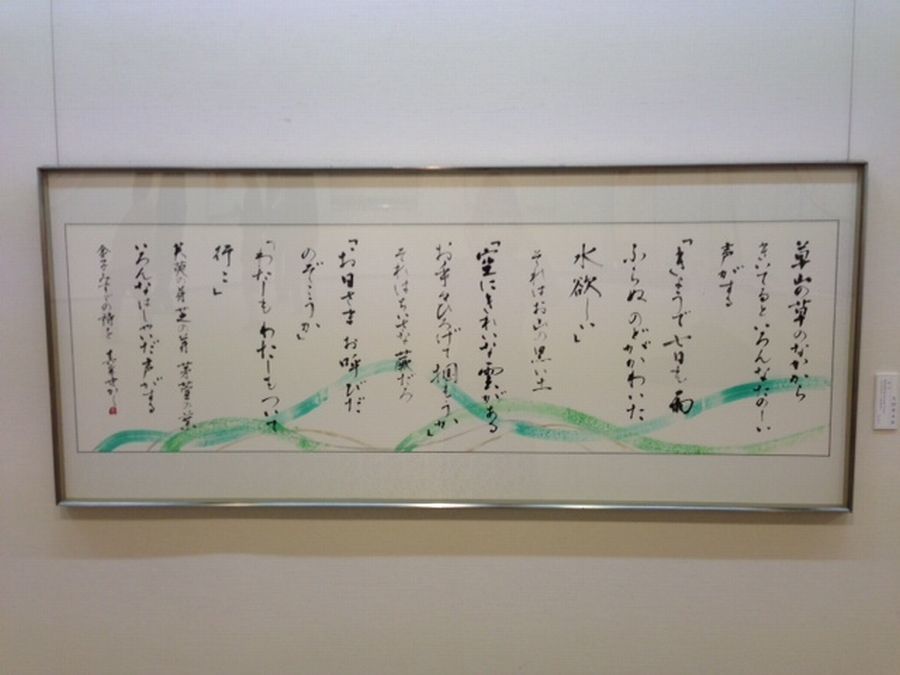 草山の草のなかから
きいてるといろんなたのしい
声がする
「きょうで七日も雨
ふらぬのどがかわいた
水欲しい」
それはお山の黒い土
「空にきれいな雲がある
お手々ひろげて掴もうか」
それはちいさな蕨だろ
「お日さまお呼びだ
のぞこうか」
「わたしもわたしもついて
行こ」
芽 芝の芽 茅萱の葉
いろんなはしゃいだ声がする
金子みすゞの詩を